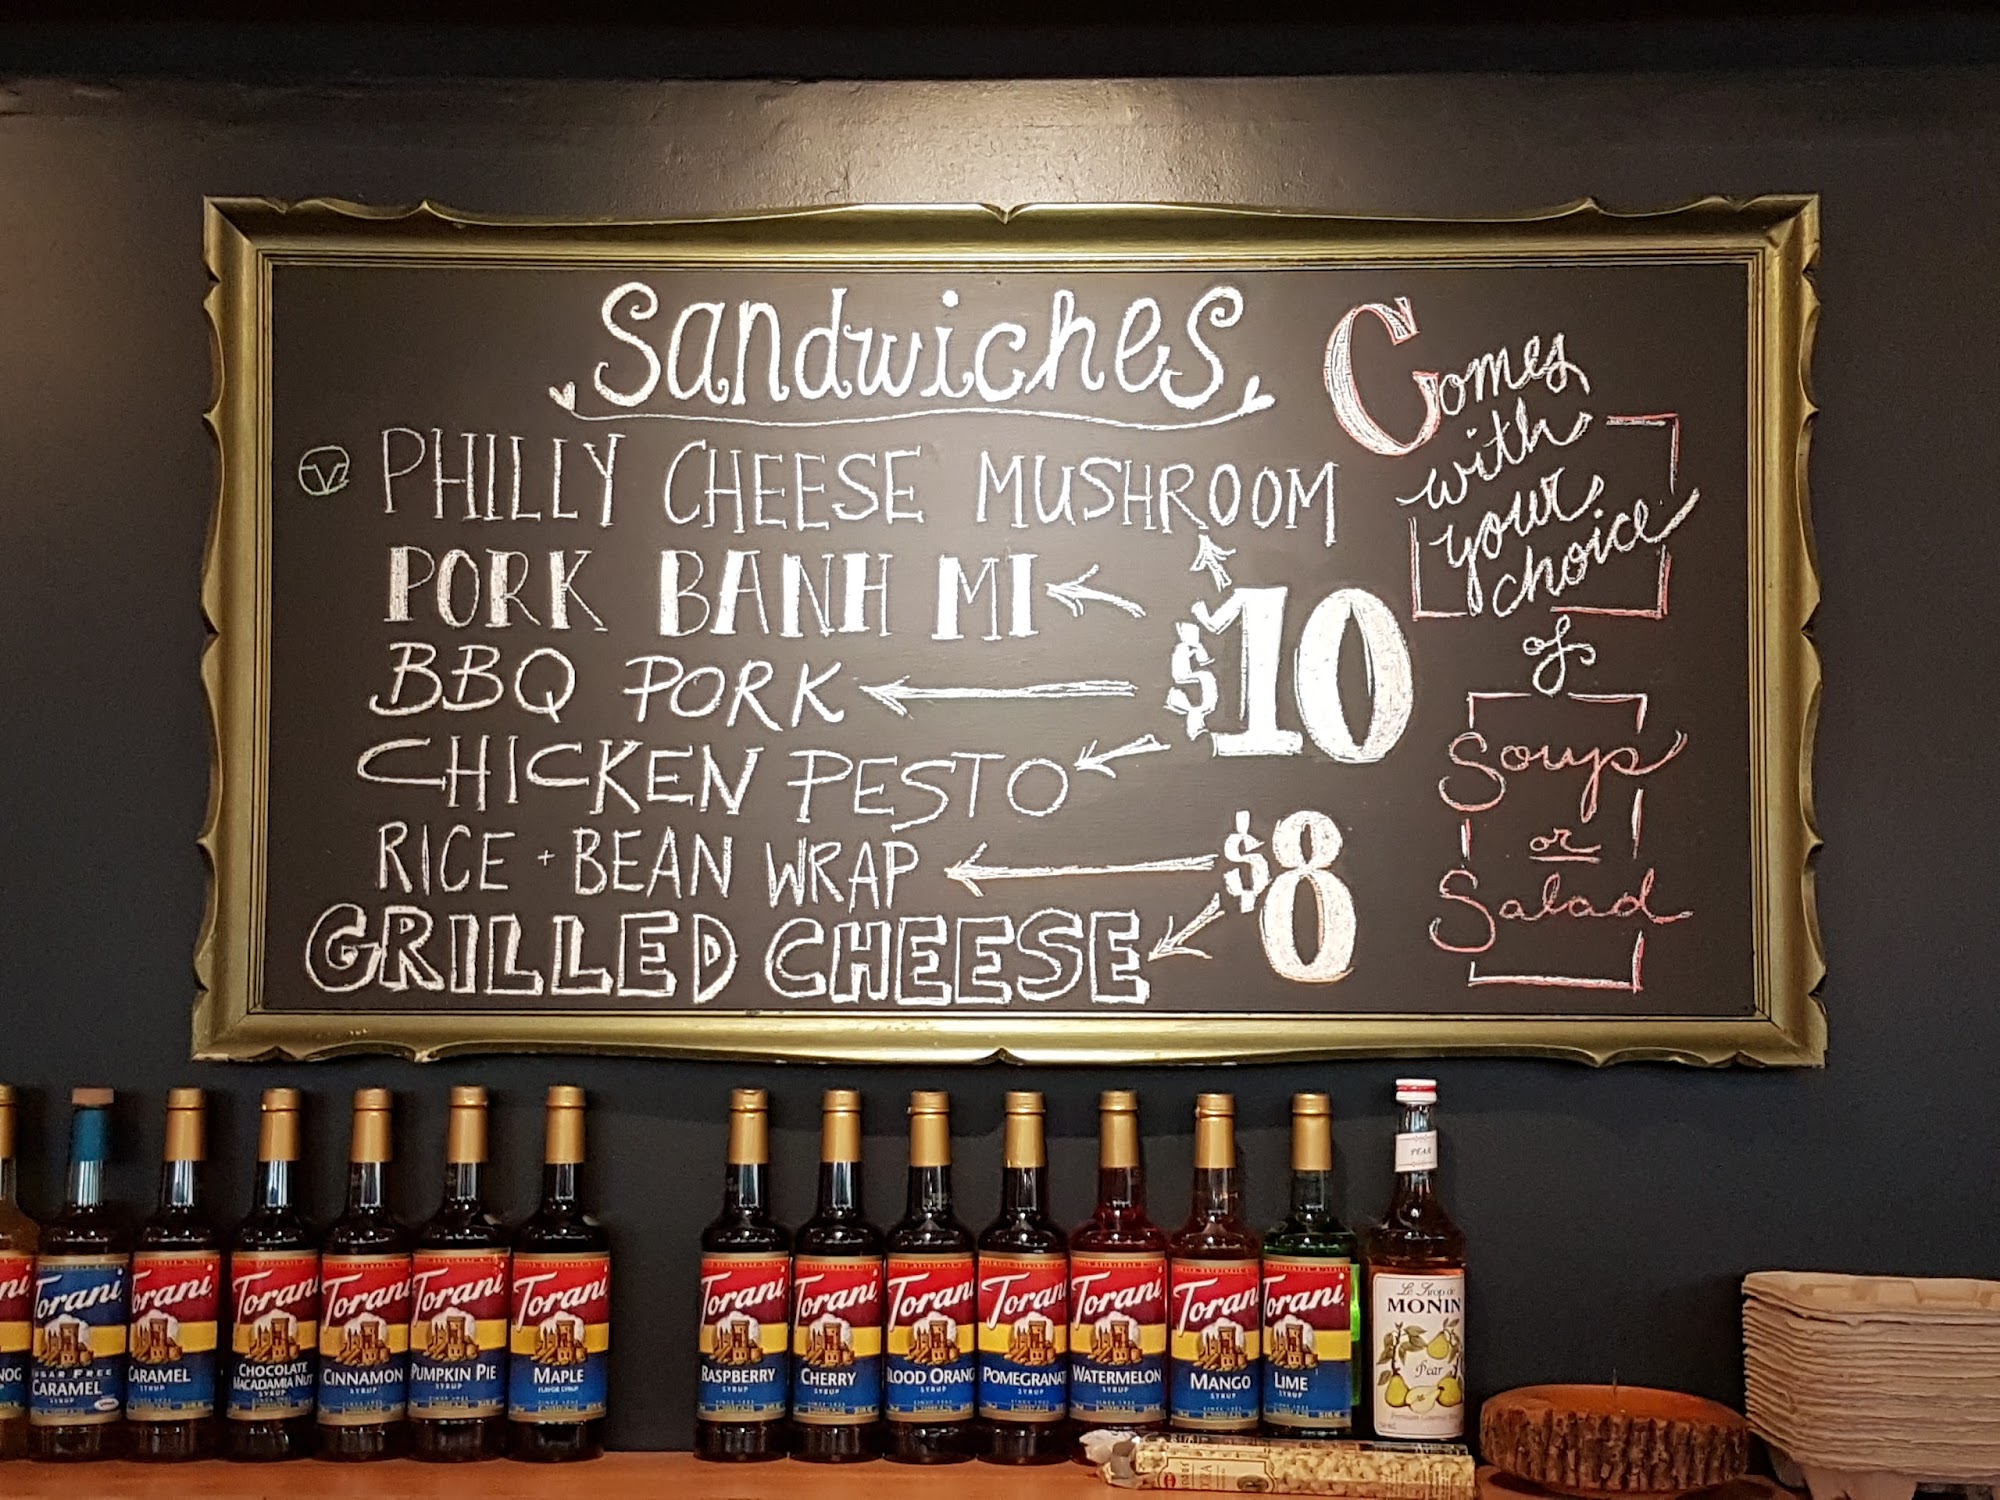 Sandwiches
V PHILLY CHEESE MUSHROOM
PORK BANH MI
BBQ PORK
CHICKEN PESTO
$10
RICE + BEAN WRAP
GRILLED CHEESE
$8
Comes
with
your
choice
of
Soup
or
Salad
Torani
SUGAR FREE
CARAMEL
Torani
CARAMEL
SYRUP
Torani
CHOCOLATE
MACADAMIA NUT
SYRUP
Torani
CINNAMON
SYRUP
Torani
PUMPKIN PIE
SYRUP
Torani
MAPLE
FLAVOR SYRUP
Torani
RASPBERRY
SYRUP
Torani
CHERRY
SYRUP
Torani
BLOOD ORANG
SYRUP
Torani
POMEGRANAT
SYRUP
Torani
WATERMELON
SYRUP
Torani
MANGO
SYRUP
Torani
LIME
SYRUP
PEAR
Le Sirop de
MONIN
Pear